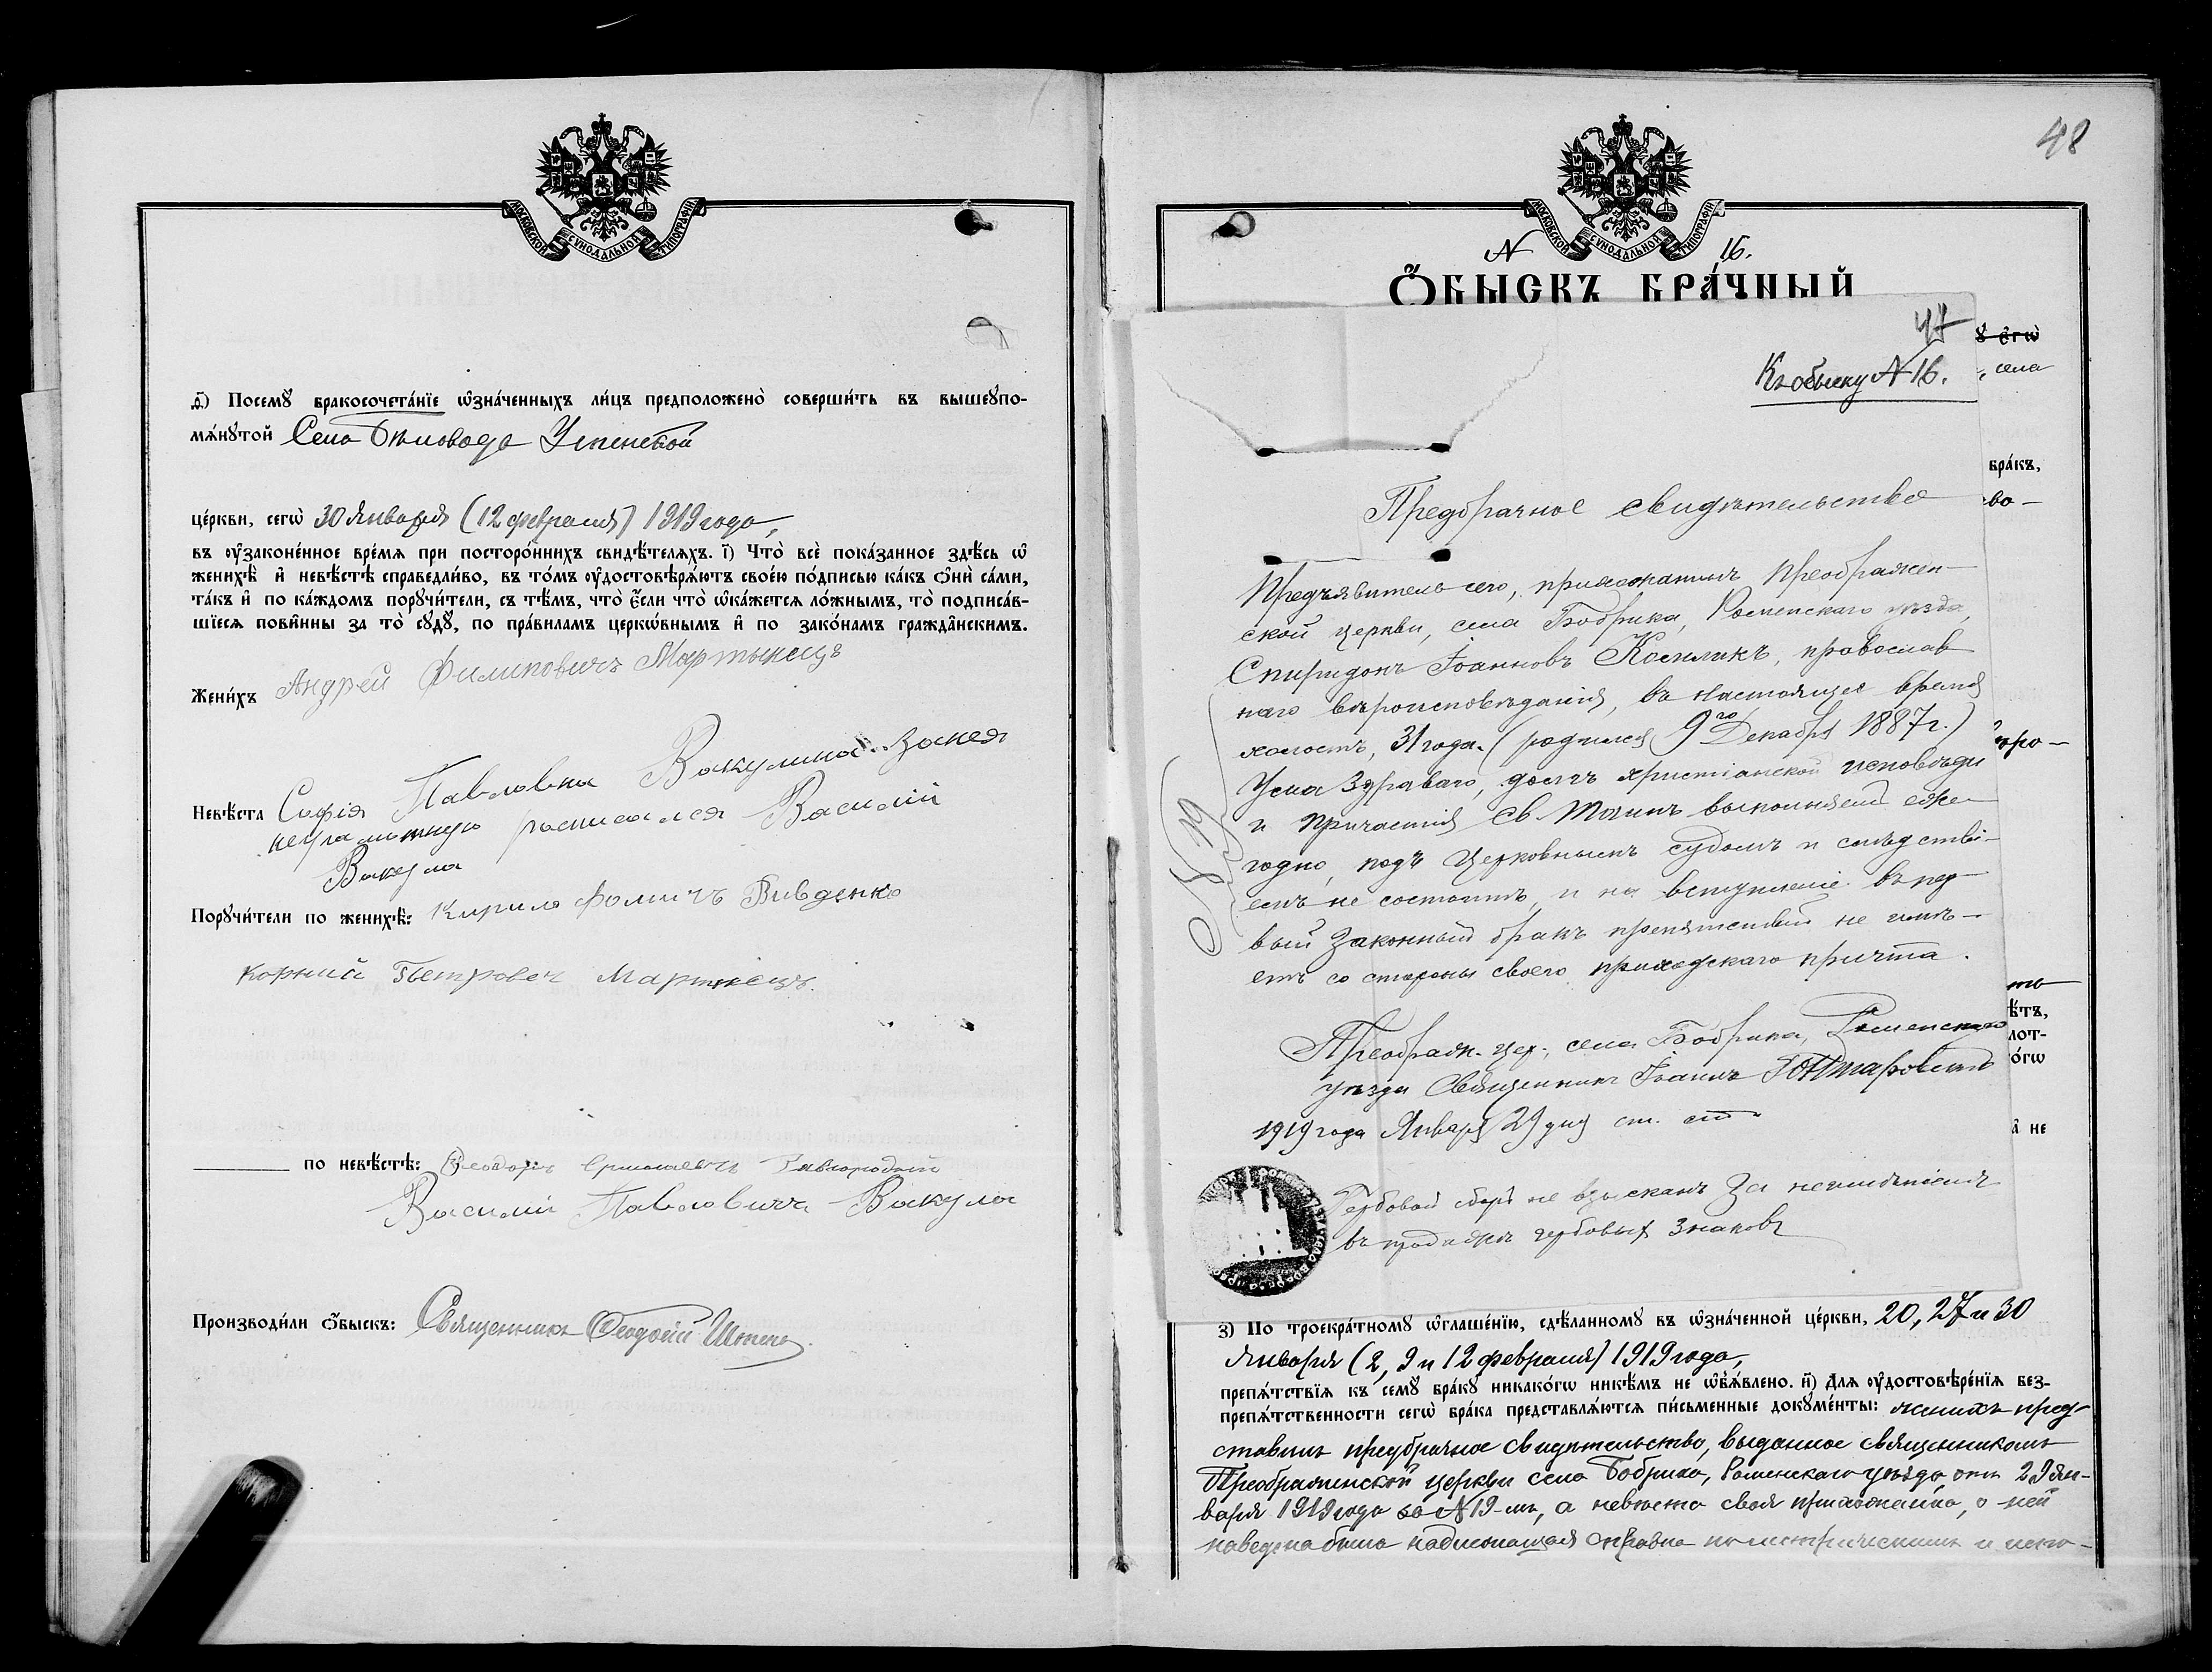 МОСКОВСКОЙ СУНОДАЛЬНОЙ ТИПОГРАФІИ
д҃) Посемꙋ̀ бракосочета́нїе ѡ҆зна́ченныхъ ли́цъ предположено̀ соверши́ть въ вышеꙋпо-
мѧ́нꙋтой Села Бѣловода Успенской
це́ркви, сегѡ̀ 30 Января (12 февраля) 1919 года,
въ ᲂу҆законе́нное вре́мѧ при посторо́ннихъ свидѣ́телѧхъ. і҃) Что̀ всѐ пока́занное здѣ́сь ѡ҆
женихѣ̀ и҆ невѣ́стѣ справедли́во, въ то́мъ ᲂу҆достовѣрѧ́ютъ свое́ю по́дписью ка́къ ѻ҆нѝ са́ми,
та́къ и҆ по ка́ждомъ порꙋчи́тели, съ тѣ́мъ, что̀ є҆́сли что̀ ѡ҆ка́жетсѧ ло́жнымъ, то̀ подписа́в-
шїесѧ пови́нны за то̀ сꙋдꙋ̀, по пра́виламъ церкѡ́внымъ и҆ по зако́намъ гражда̑нскимъ.
Жени́хъ Андрей Филиповичъ Мартынецъ
Невѣ́ста Софія Павловна Вакулина. За нея
неграмотную росписался Василій
Вакула
Порꙋчи́тели по женихѣ̀: Кирило Фомичъ Вивденко
Корній Петрович Мартинецъ.
по невѣ́стѣ: Феодоръ
Василій Павловичъ Вакула
Производи́ли ѻ҆́быскъ: Священникъ Феодосій
48
МОСКОВСКОЙ СУНОДАЛЬНОЙ ТИПОГРАФІИ
N 16.
Ѻ҆́БЫСКЪ БРА́ЧНЫЙ
47
ꙋ є҆гѡ̀
Къ обыску N 16.
, села
бра́къ,
Предбрачное свидѣтельство
во-
Предъявитель сего, прихожанинъ Преображен-
ской церкви, села Бобрика, Роменскаго уѣзда,
Спиридонъ Іоанновъ Костликъ, православ
наго вѣроисповѣданія, въ настоящее время
холостъ, 31 года (родился 9го Декабря 1887 г.)
Ума здраваго, долгъ христіанской исповѣди
и причастія Св. Таинъ выполняетъ еже-
годно, подъ церковнымъ судомъ и слѣдстві-
емъ не состоитъ, и на вступленіе въ пер-
вый законный бракъ препятствій не имѣ-
етъ со стороны своего приходскаго причта.
N 19
про-
ѣтъ,
лот-
о́гѡ
и҆ не
Преображ. цер., села Бобрика, Роменскаго
уѣзда Священникъ Іоаннъ
1919 года Января 29 дня ст. ст.
Гербовой сборъ не взысканъ за неимѣніемъ
въ продажѣ гербовыхъ знаковъ
з҃) По троекра́тномꙋ ѡ҆глаше́нїю, сдѣ́ланномꙋ въ ѡ҆зна́ченной це́ркви, 20, 27 и 30
Января (2, 9 и 12 февраля) 1919 года,
препѧ́тствїѧ къ семꙋ̀ бра́кꙋ никако́гѡ никѣ́мъ не ѡ҆б̾ѧ́влено. и҃) Длѧ ᲂу҆достовѣре́нїѧ без-
препѧ́тственности сегѡ̀ бра́ка представлѧ́ютсѧ пи́сьменные докꙋме́нты: женихъ пред-
ставилъ предбрачное свидѣтельство, выданное священникомъ
Преображенской церкви села Бобрика, Роменскаго уѣзда, отъ 29 Ян-
варя 1919 года за N 19-мъ, а невѣста своя прихожанка, о ней
наведена была надлежащая справка по метрическимъ и испо-